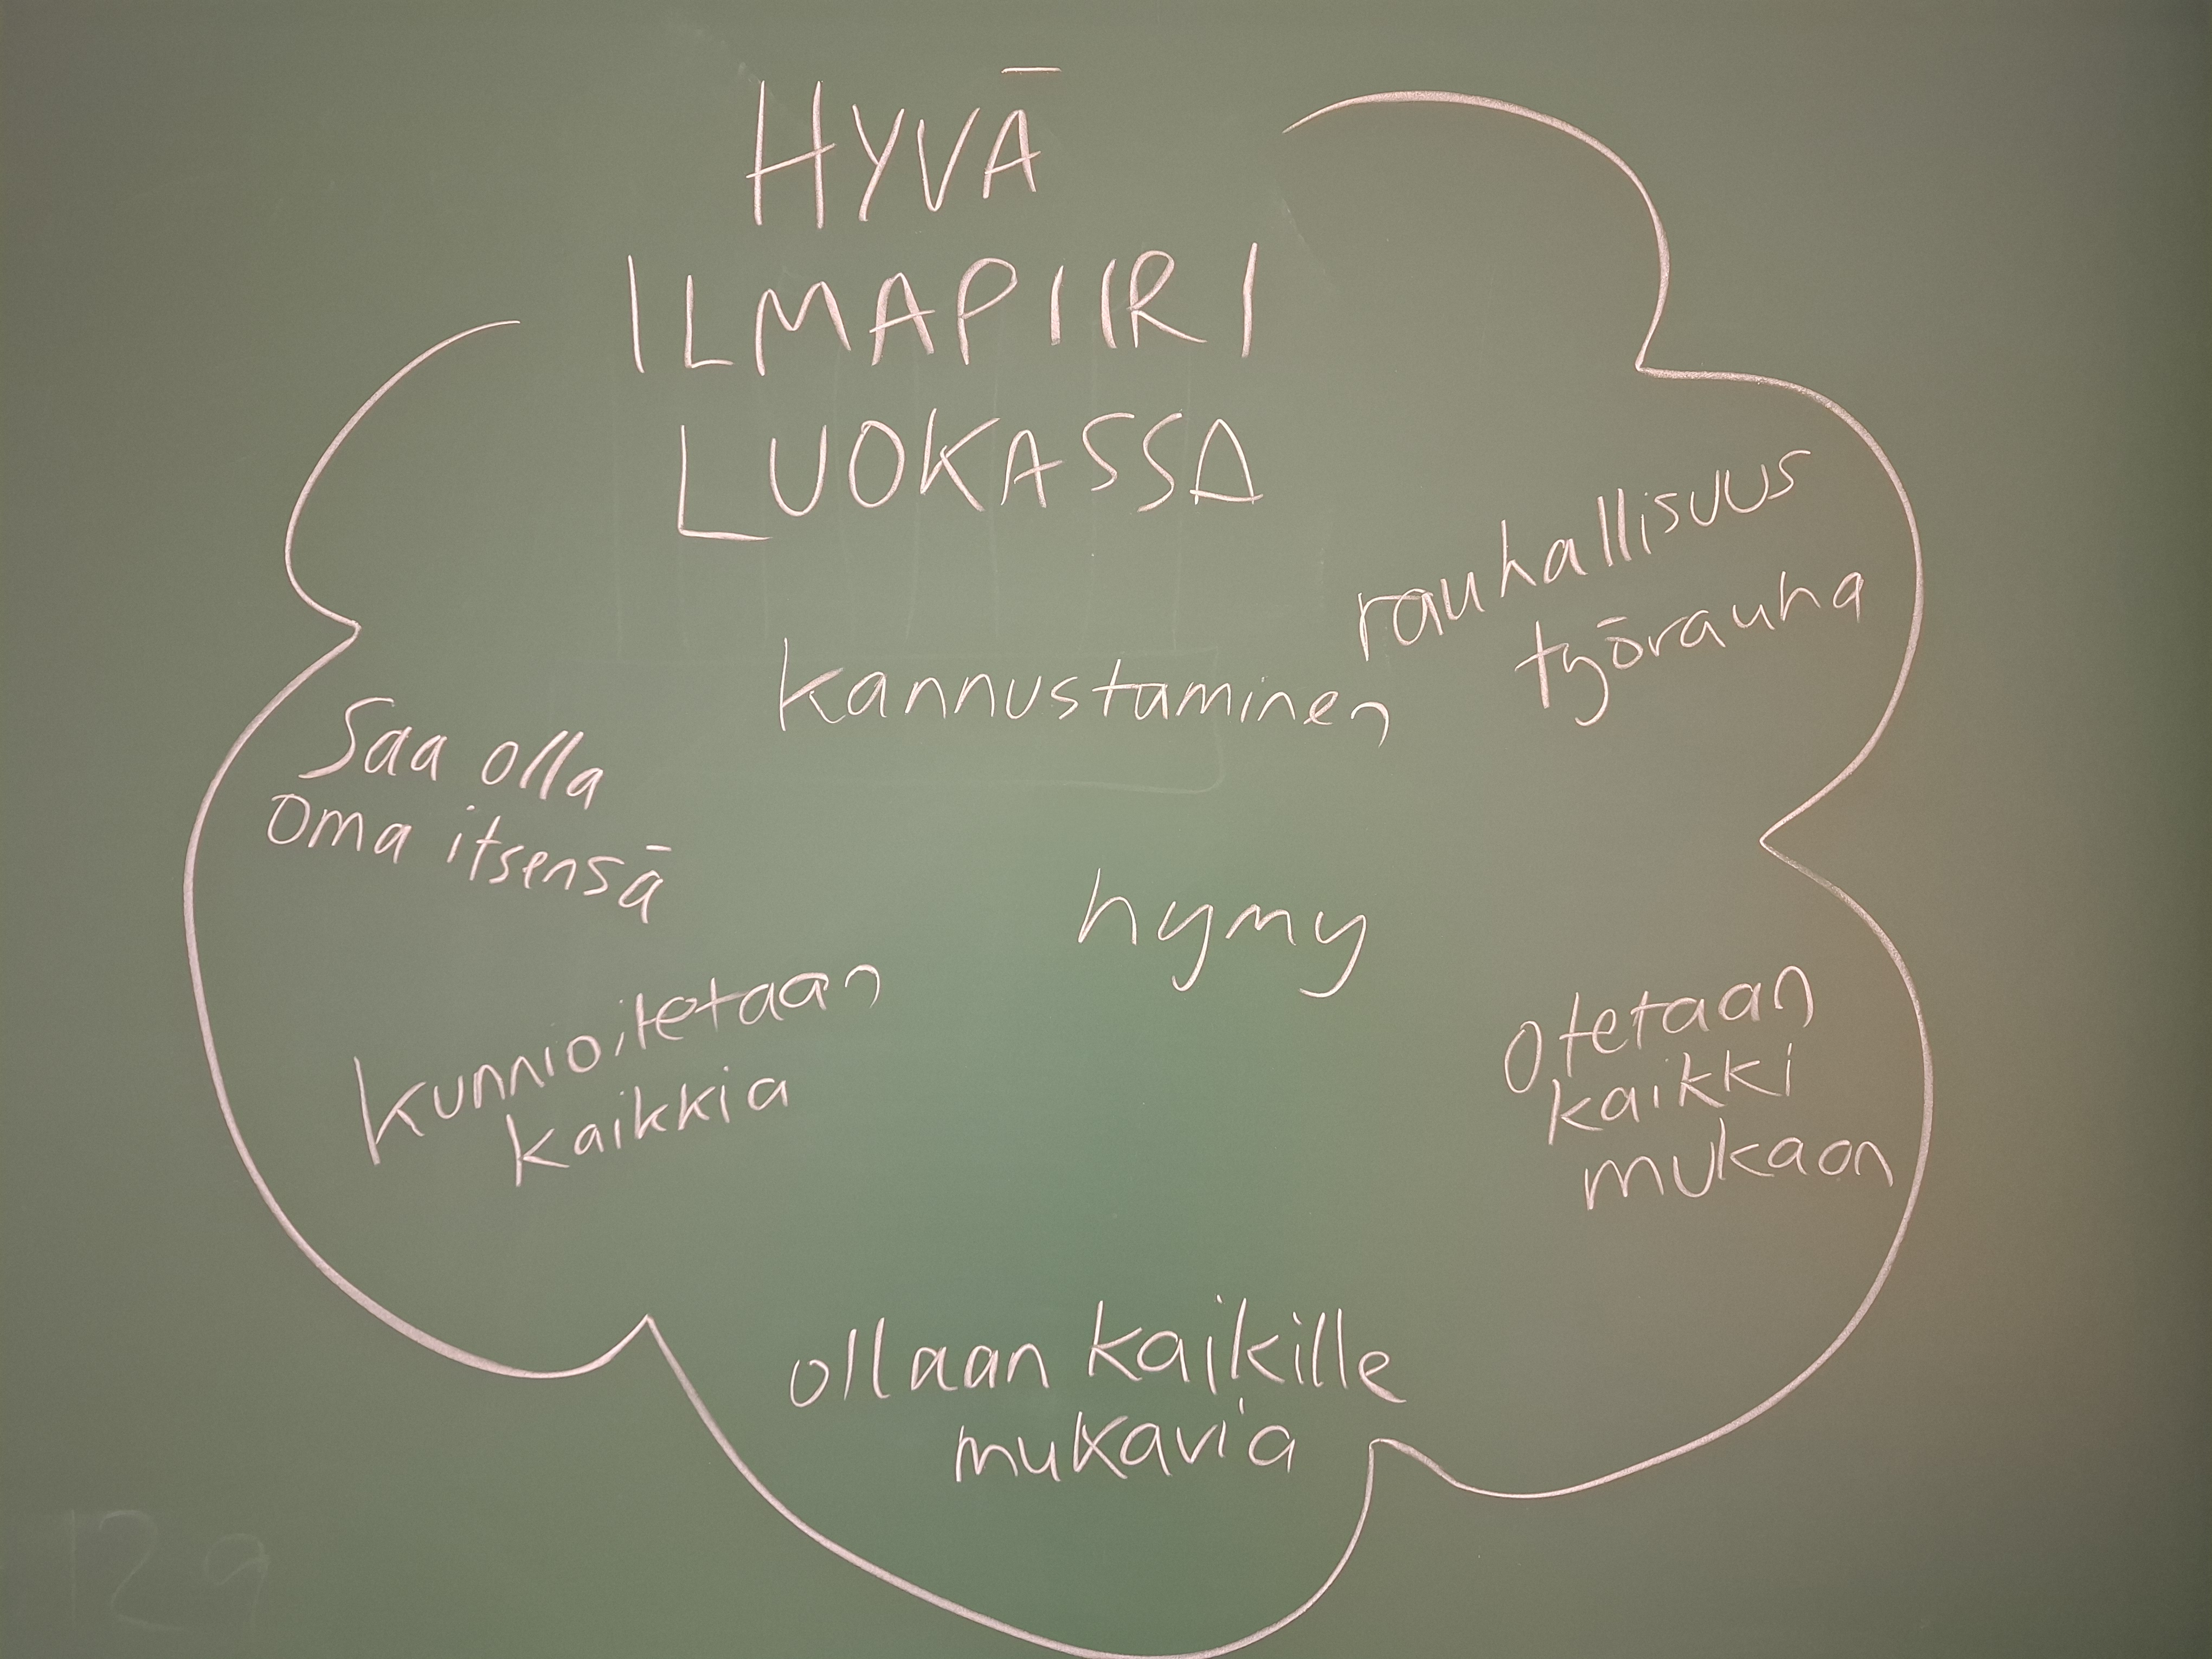 HYVÄ
ILMAPIIRI
LUOKASSA
rauhallisuus
työrauha
kannustaminen
Saa olla
oma itsensä
hymy
kunnioitetaan
kaikkia
Otetaan
kaikki
mukaan
ollaan kaikille
mukavia
129